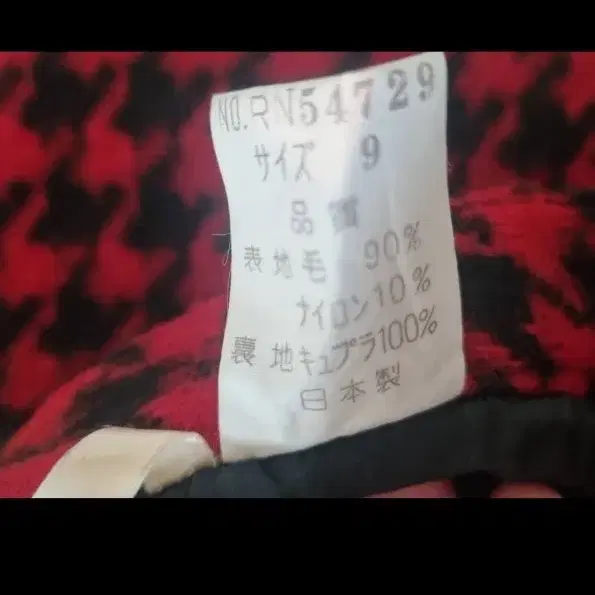 NO.RN54729
サイズ 9
品質
表地毛 90%
ナイロン10%
裏地キュプラ100%
日本製